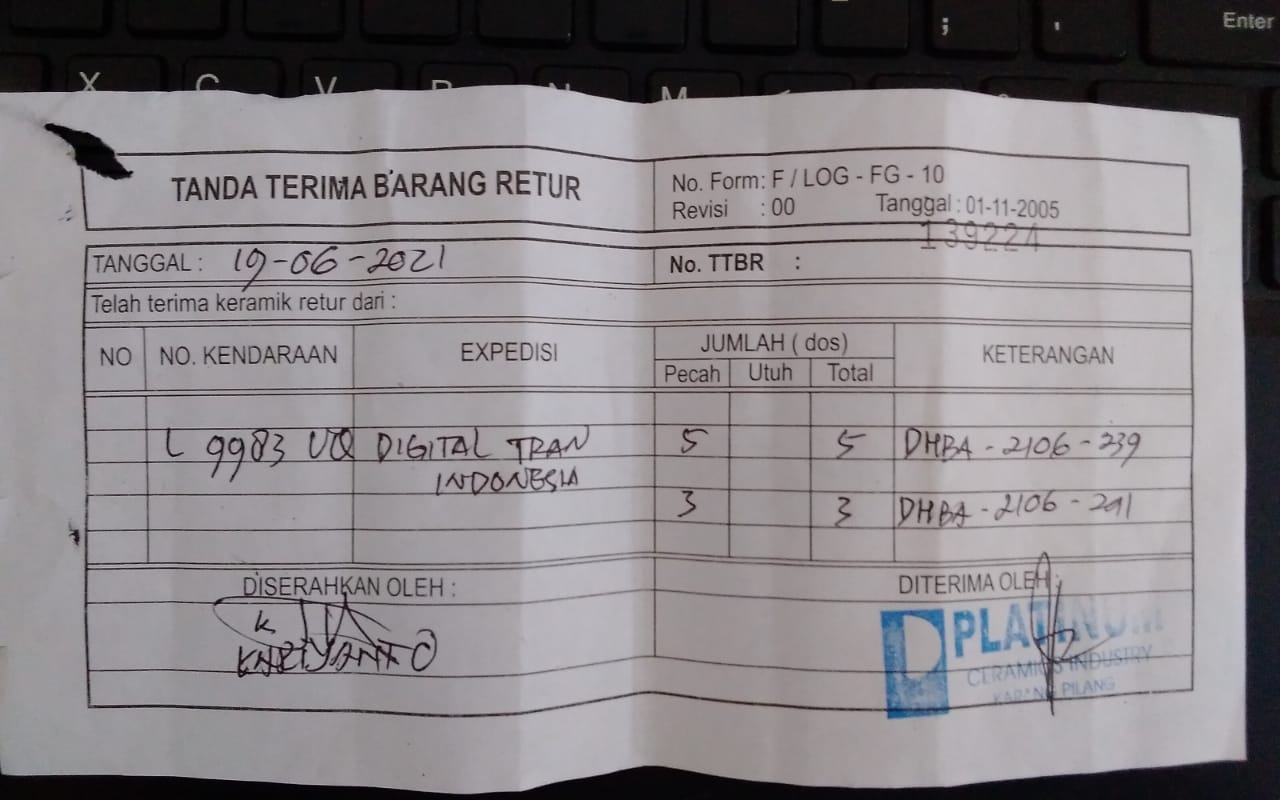 ; ' Enter
X C V B N M
TANDA TERIMA BARANG RETUR
No. Form: F / LOG - FG - 10
Revisi : 00 Tanggal : 01-11-2005
139224
TANGGAL : 19-06-2021 No. TTBR :
Telah terima keramik retur dari :
NO NO. KENDARAAN EXPEDISI JUMLAH ( dos) KETERANGAN
Pecah Utuh Total
L 9983 UQ DIGITAL TRAN 5 5 DHBA - 2106 - 239
INDONESIA
3 3 DHBA - 2106 - 241
DISERAHKAN OLEH : DITERIMA OLEH :
K
KARIYANTO
PLATINUM
CERAMICS INDUSTRY
KARANG PILANG